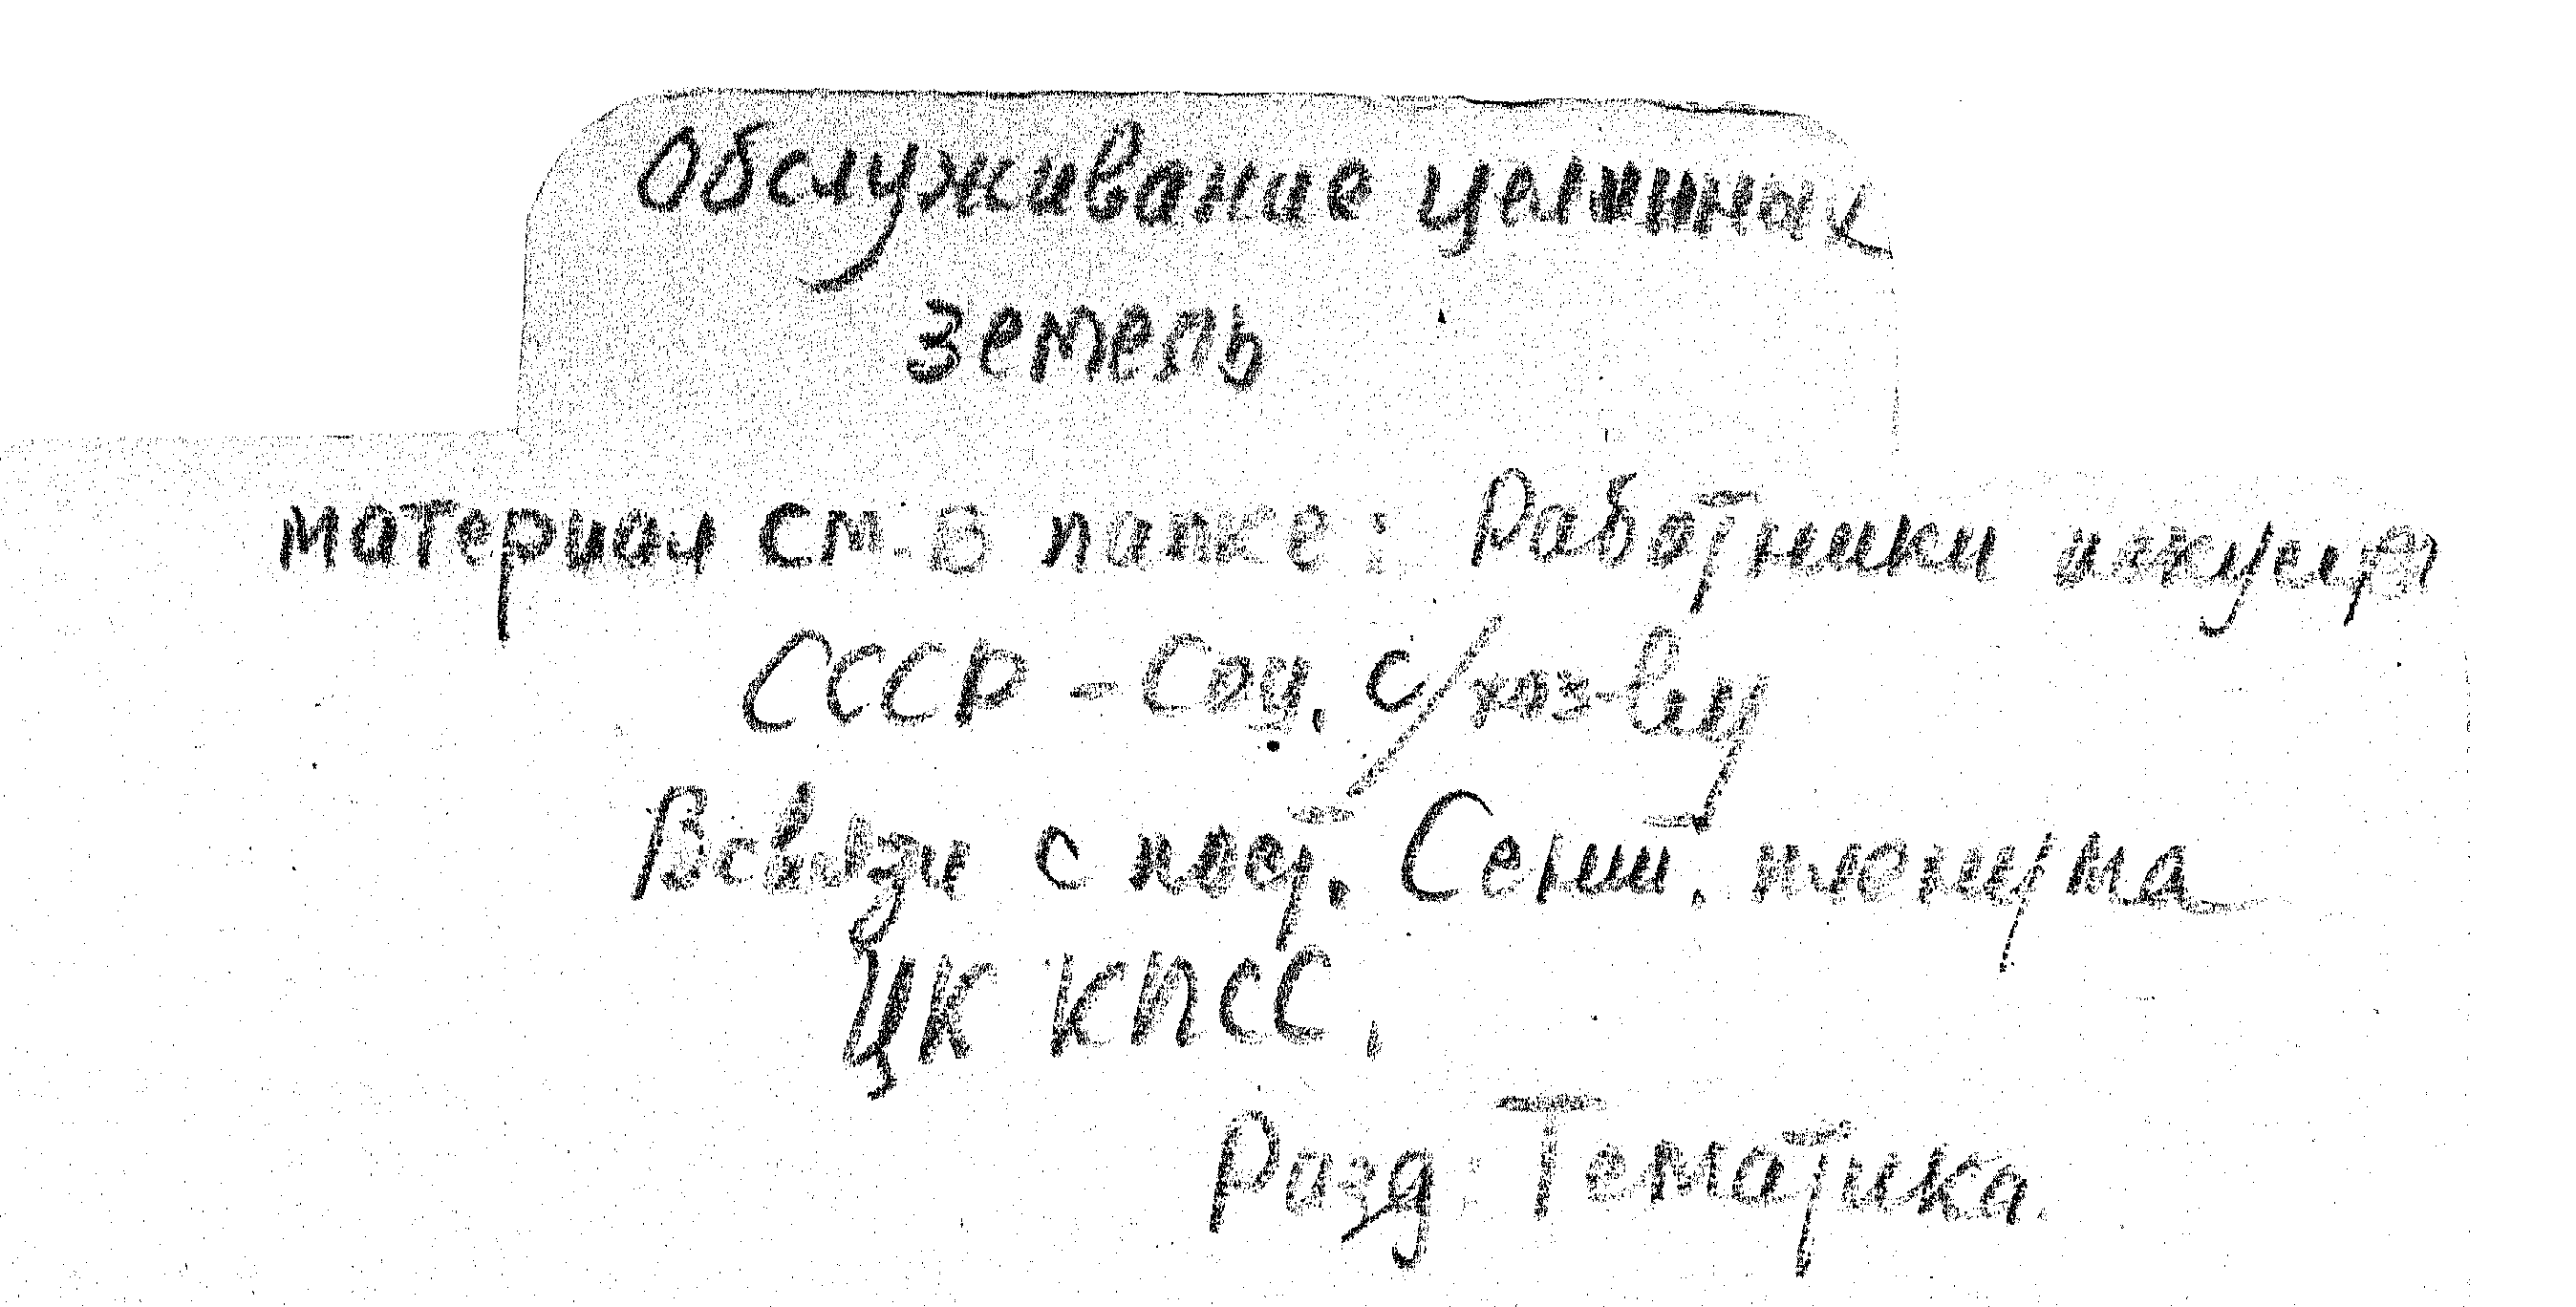 Обслуживание целинных
земель
материал см. в папке: Работники искусств
СССР - Соц. с/хоз-ву
В связи с пост. Сент. пленума
ЦК КПСС.
Разд. Тематика.